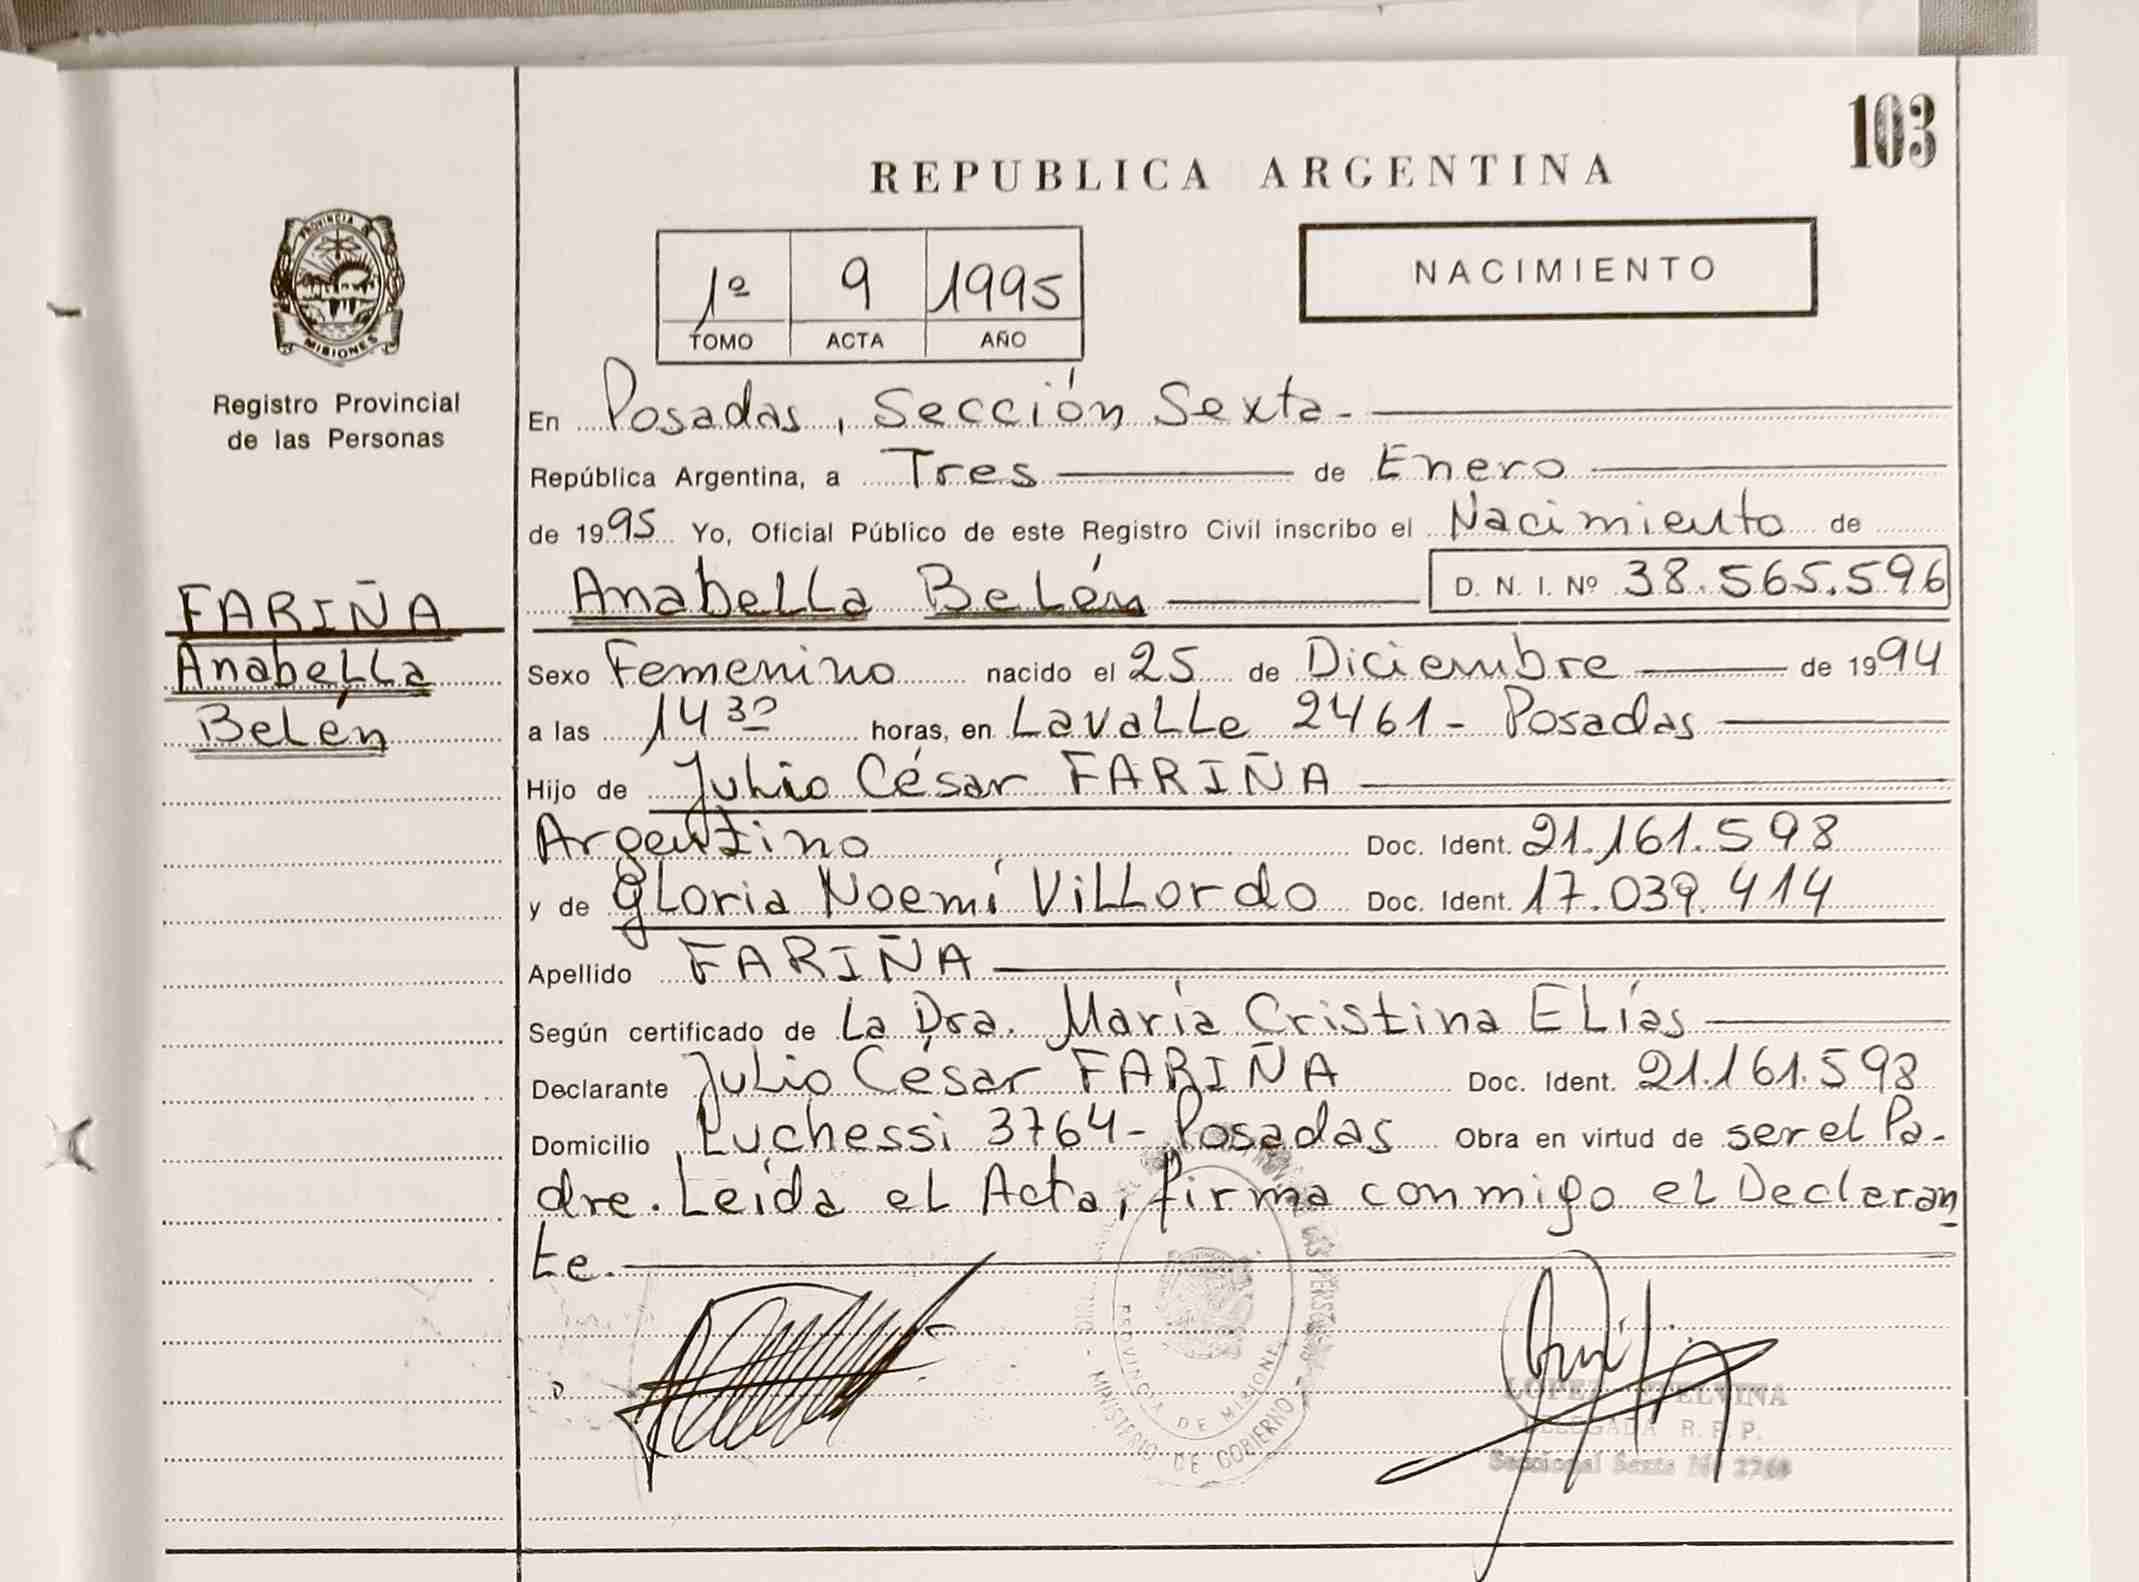 103
REPUBLICA ARGENTINA
PROVINCIA DE
MISIONES
1º 9 1995
TOMO ACTA AÑO
NACIMIENTO
Registro Provincial
de las Personas
En Posadas, Sección Sexta-
República Argentina, a Tres de Enero
de 1995 Yo, Oficial Público de este Registro Civil inscribo el Nacimiento de
FARIÑA
Anabella
Belén
Anabella Belén D. N. I. Nº 38.565.596
Sexo Femenino nacido el 25 de Diciembre de 1994
a las 14 30 horas, en Lavalle 2461- Posadas
Hijo de Julio César FARIÑA
Argentino Doc. Ident. 21.161.598
y de Gloria Noemí Villordo Doc. Ident. 17.039.414
Apellido FARIÑA
Según certificado de La Dra. María Cristina Elías
Declarante Julio César FARIÑA Doc. Ident. 21.161.598
Domicilio Luchessi 3764- Posadas Obra en virtud de ser el Pa-
dre. Leída el Acta, firma conmigo el Declaran
te.
PROVINCIA DE MISIONES
MINISTERIO DE GOBIERNO
LOPEZ
DELEGADA R. P. P.
Seccional Sexta